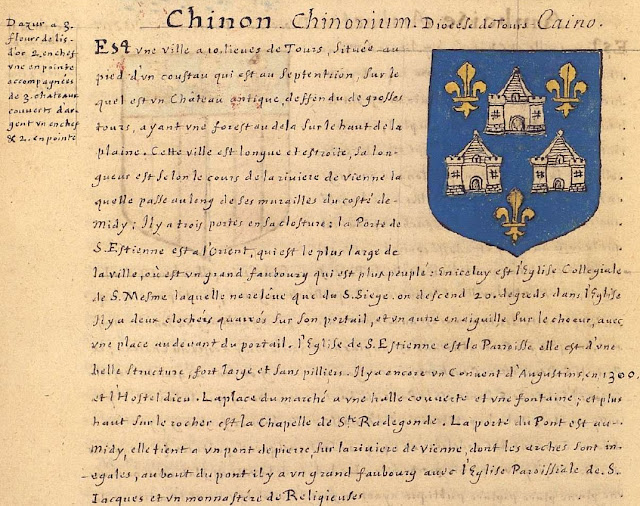 Chinon. Chinonium. Diocese de Tours. Caino.
Dazur a 3.
fleurs de lis
d'or 2. en chef
vne en pointe
accompagnées
de 3. chateaux
couverts d'ar
gent vn en chef
& 2. en pointe
Est vne ville a 10. lieues de Tours, Située au
pied d'vn coustau qui est au Septentrion, sur le
quel est vn Château antique, deffendu de grosses
tours, ayant vne forest au dela sur le haut de la
plaine. Cette ville est longue et estroite, sa lon-
gueur est selon le cours de la riviere de vienne la
quelle passe au long de ses murailles du costé de
midy: Il y a trois portes en sa closture: la Porte de
S. Estienne est a l'Orient, qui est le plus large de
la ville, où est vn grand faubourg qui est plus peuplé: En iceluy est l'Eglise Collegiale
de S. Mesme laquelle ne reléve que du S. Siege. on descend 20. degreds dans l'Eglise
Il y a deux clochers quarrés sur son portail, et vn autre en aiguille sur le choeur, avec
vne place au devant du portail. l'Eglise de S. Estienne est la Paroisse elle est d'vne
belle structure, fort large et sans pilliers. Il y a encore vn Convent d'Augustins, en 1300.
et l'Hostel dieu. La place du marché a vne halle couverte et vne fontaine; et plus
haut sur le rocher est la Chapelle de Ste Radegonde. La porte du Pont est au
midy, elle tient a vn pont de pierre, sur la riviere de Vienne, dont les arches sont in-
egales, au bout du pont il y a vn grand faubourg avec l'Eglise Paroissiale de S.
Jacques et vn monnastére de Religieuses